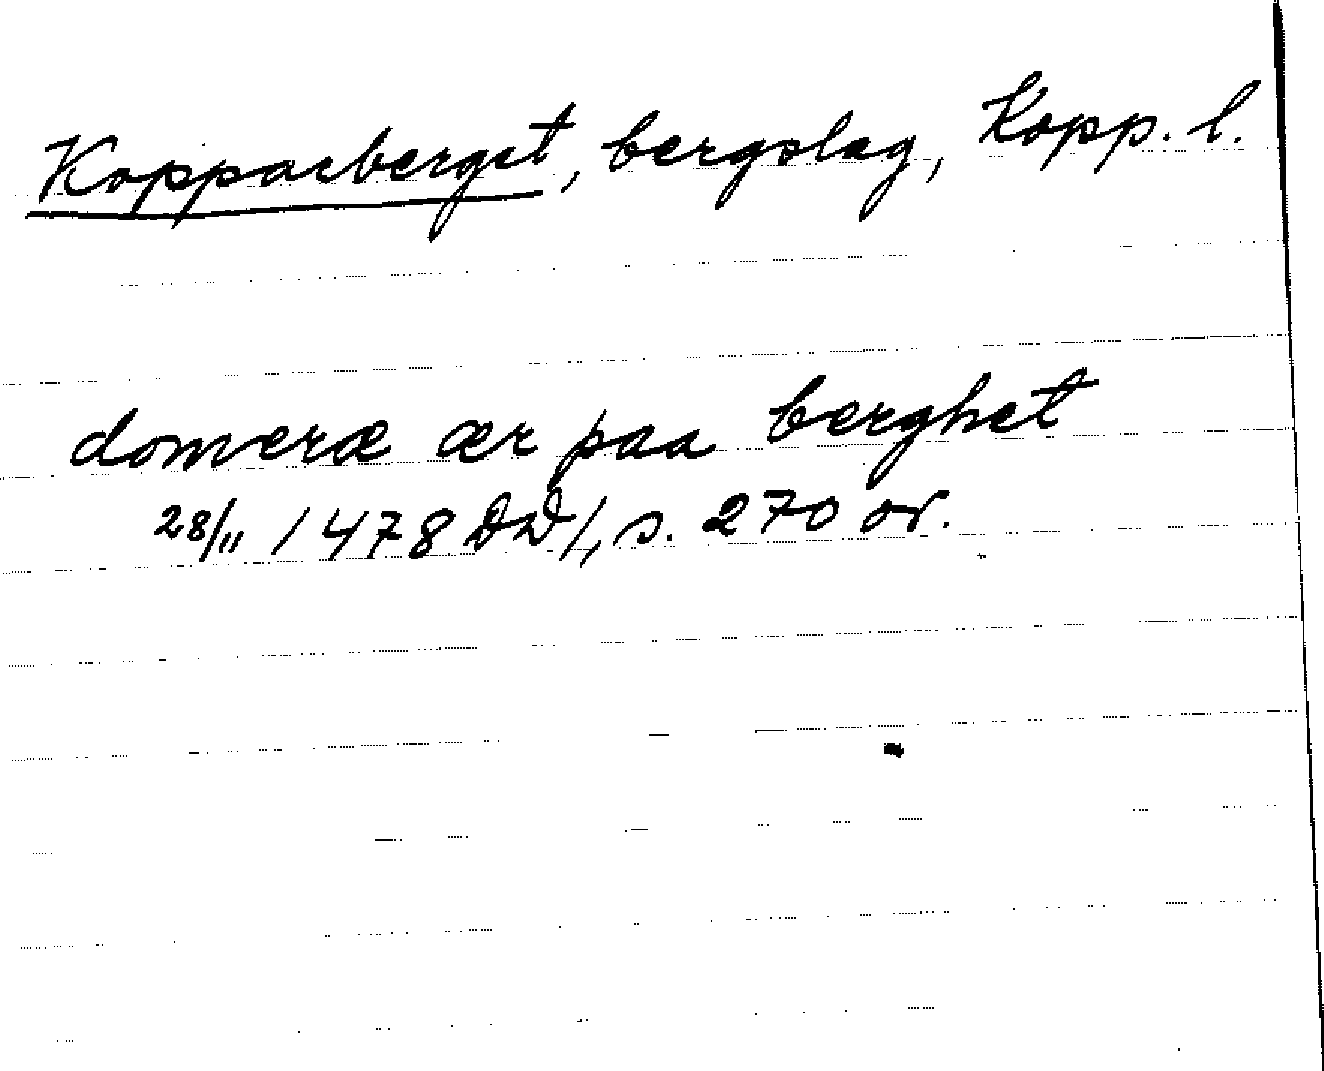 Kopparberget, bergslag, Kopp. l.
domeræ ær paa berghet
28/11 1478 DD 1, s. 270 or.